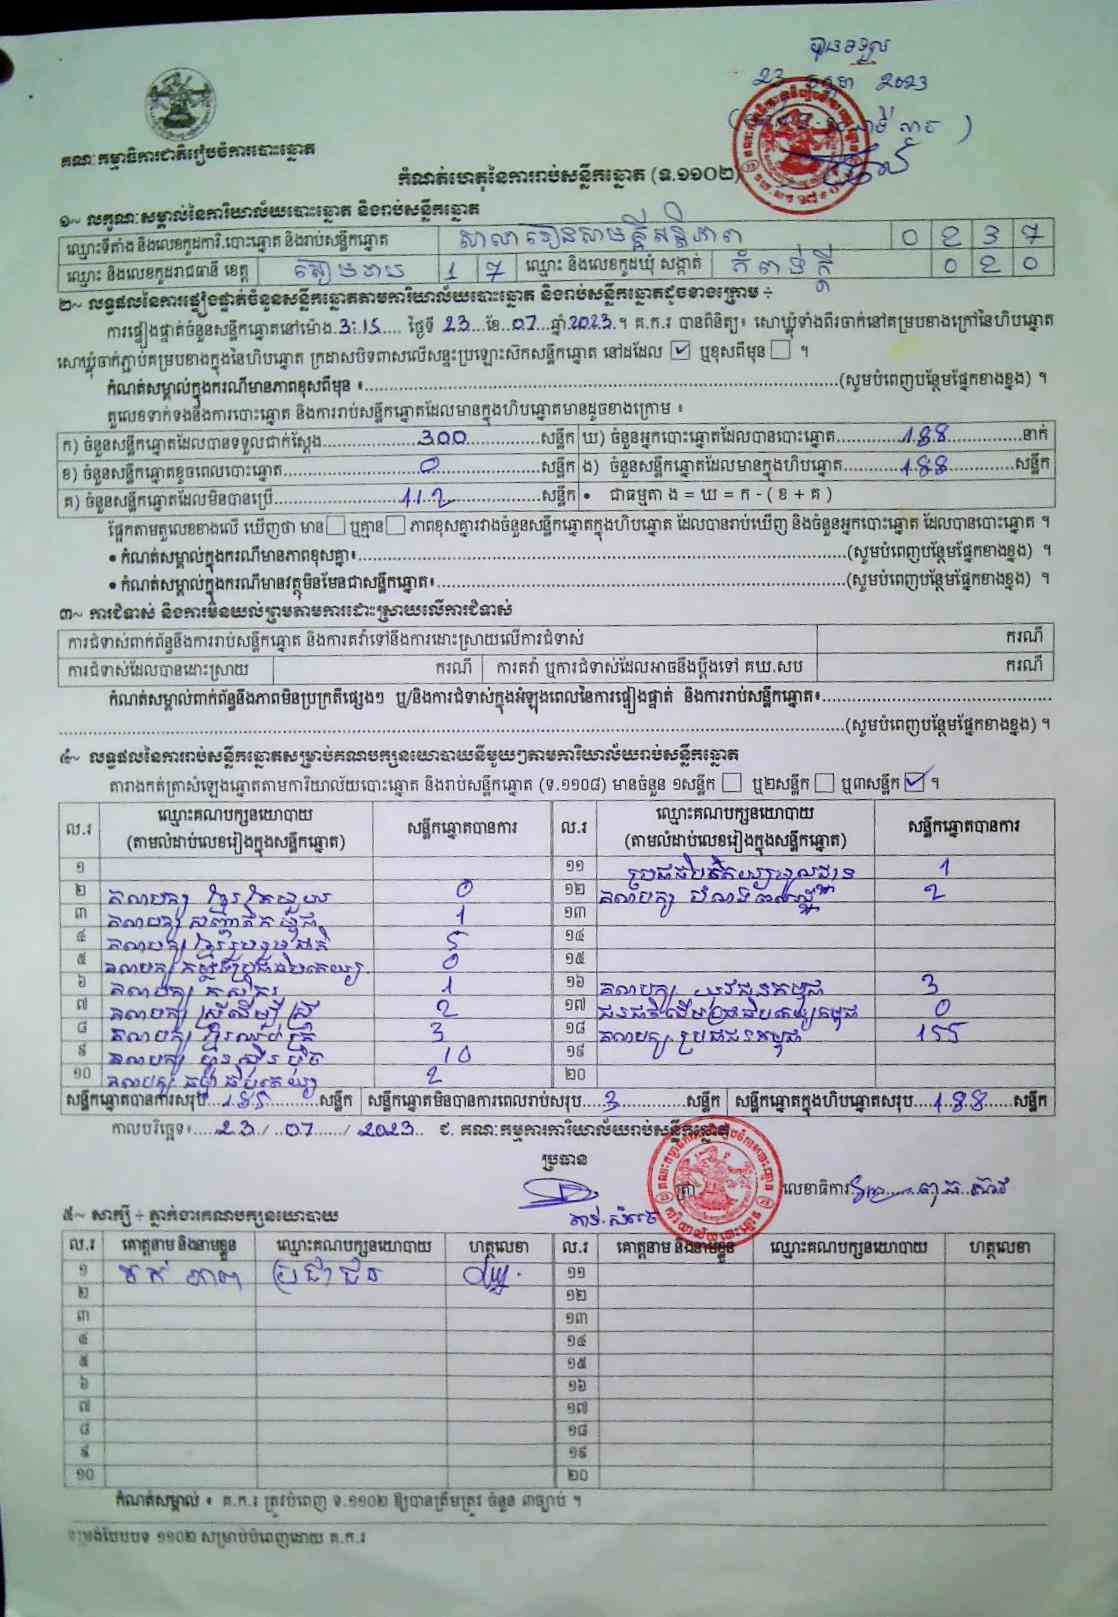 បានទទួល
23 កក្កដា 2023
គណៈកម្មាធិការជាតិរៀបចំការបោះឆ្នោត
កំណត់ហេតុនៃការរាប់សន្លឹកឆ្នោត (ទ.១១០២)
១~ លក្ខណៈសម្គាល់នៃការិយាល័យបោះឆ្នោត និងរាប់សន្លឹកឆ្នោត
ឈ្មោះទីតាំង និងលេខកូដការិ.បោះឆ្នោត និងរាប់សន្លឹកឆ្នោត សាលារៀនសាមគ្គីសន្តិភាព 0 2 3 7
ឈ្មោះ និងលេខកូដរាជធានី ខេត្ត សៀមរាប 1 7 ឈ្មោះ និងលេខកូដឃុំ សង្កាត់ កំពង់ក្តី 0 2 0
២~ លទ្ធផលនៃការផ្ទៀងផ្ទាត់ចំនួនសន្លឹកឆ្នោតតាមការិយាល័យបោះឆ្នោត និងរាប់សន្លឹកឆ្នោតដូចខាងក្រោម ÷
ការផ្ទៀងផ្ទាត់ចំនួនសន្លឹកឆ្នោតនៅម៉ោង.3:15..... ថ្ងៃទី 23...ខែ..07...ឆ្នាំ.2023.។ គ.ក.រ បានពិនិត្យ៖ សោឃ្លុំទាំងពីរចាក់នៅគម្របខាងក្រៅនៃហិបឆ្នោត
សោឃ្លុំចាក់ភ្ជាប់គម្របខាងក្នុងនៃហិបឆ្នោត ក្រដាសបិទពាសលើសន្ទះប្រឡោះស៊កសន្លឹកឆ្នោត នៅដដែល ☑ ឬខុសពីមុន ☐ ។
កំណត់សម្គាល់ក្នុងករណីមានភាពខុសពីមុន ៖..........(សូមបំពេញបន្ថែមផ្នែកខាងខ្នង) ។
តួលេខទាក់ទងនឹងការបោះឆ្នោត និងការរាប់សន្លឹកឆ្នោតដែលមានក្នុងហិបឆ្នោតមានដូចខាងក្រោម ៖
ក) ចំនួនសន្លឹកឆ្នោតដែលបានទទួលជាក់ស្តែង..........300..........សន្លឹក ឃ) ចំនួនអ្នកបោះឆ្នោតដែលបានបោះឆ្នោត..........188..........នាក់
ខ) ចំនួនសន្លឹកឆ្នោតខូចពេលបោះឆ្នោត..........0..........សន្លឹក ង) ចំនួនសន្លឹកឆ្នោតដែលមានក្នុងហិបឆ្នោត..........188..........សន្លឹក
គ) ចំនួនសន្លឹកឆ្នោតដែលមិនបានប្រើ..........112..........សន្លឹក • ជាធម្មតា ង = ឃ = ក - ( ខ + គ )
ផ្អែកតាមតួលេខខាងលើ ឃើញថា មាន ☐ ឬគ្មាន ☐ ភាពខុសគ្នារវាងចំនួនសន្លឹកឆ្នោតក្នុងហិបឆ្នោត ដែលបានរាប់ឃើញ និងចំនួនអ្នកបោះឆ្នោត ដែលបានបោះឆ្នោត ។
• កំណត់សម្គាល់ក្នុងករណីមានភាពខុសគ្នា៖..........(សូមបំពេញបន្ថែមផ្នែកខាងខ្នង) ។
• កំណត់សម្គាល់ក្នុងករណីមានវត្ថុមិនមែនជាសន្លឹកឆ្នោត៖..........(សូមបំពេញបន្ថែមផ្នែកខាងខ្នង) ។
៣~ ការជំទាស់ និងការមិនយល់ព្រមតាមការដោះស្រាយលើការជំទាស់
ការជំទាស់ពាក់ព័ន្ធនឹងការរាប់សន្លឹកឆ្នោត និងការតវ៉ាទៅនឹងការដោះស្រាយលើការជំទាស់ ករណី
ការជំទាស់ដែលបានដោះស្រាយ ករណី ការតវ៉ា ឬការជំទាស់ដែលអាចនឹងប្តឹងទៅ គឃ.សប ករណី
កំណត់សម្គាល់ពាក់ព័ន្ធនឹងភាពមិនប្រក្រតីផ្សេងៗ ឬ/និងការជំទាស់ក្នុងអំឡុងពេលនៃការផ្ទៀងផ្ទាត់ និងការរាប់សន្លឹកឆ្នោត៖..........
..........(សូមបំពេញបន្ថែមផ្នែកខាងខ្នង) ។
៤~ លទ្ធផលនៃការរាប់សន្លឹកឆ្នោតសម្រាប់គណបក្សនយោបាយនីមួយៗតាមការិយាល័យរាប់សន្លឹកឆ្នោត
តារាងកត់ត្រាសំឡេងឆ្នោតតាមការិយាល័យបោះឆ្នោត និងរាប់សន្លឹកឆ្នោត (ទ.១១០៨) មានចំនួន ១សន្លឹក ☐ ឬ២សន្លឹក ☐ ឬ៣សន្លឹក ☑ ។
ល.រ ឈ្មោះគណបក្សនយោបាយ (តាមលំដាប់លេខរៀងក្នុងសន្លឹកឆ្នោត) សន្លឹកឆ្នោតបានការ ល.រ ឈ្មោះគណបក្សនយោបាយ (តាមលំដាប់លេខរៀងក្នុងសន្លឹកឆ្នោត) សន្លឹកឆ្នោតបានការ
១ ១១ 1
២ គណបក្ស ខ្មែរ 0 ១២ គណបក្ស 2
៣ គណបក្ស 1 ១៣
៤ គណបក្ស ខ្មែររួបរួមជាតិ 5 ១៤
៥ គណបក្ស កម្ពុជា 0 ១៥
៦ គណបក្ស កសិករ 1 ១៦ គណបក្ស យុវជនកម្ពុជា 3
៧ គណបក្ស ស្ត្រីដើម្បីស្ត្រី 2 ១៧ 0
៨ គណបក្ស 3 ១៨ គណបក្ស ប្រជាជនកម្ពុជា 155
៩ គណបក្ស ហ៊្វុនស៊ិនប៉ិច 10 ១៩
១០ គណបក្ស ធម្មាធិបតេយ្យ 2 ២០
សន្លឹកឆ្នោតបានការសរុប...185..........សន្លឹក សន្លឹកឆ្នោតមិនបានការពេលរាប់សរុប....3..........សន្លឹក សន្លឹកឆ្នោតក្នុងហិបឆ្នោតសរុប...188.....សន្លឹក
កាលបរិច្ឆេទ៖....23./..07....../ 2023.. ជ. គណៈកម្មការការិយាល័យរាប់សន្លឹកឆ្នោត
ប្រធាន
ត្រា លេខាធិការ
៥~ សាក្សី ÷ ភ្នាក់ងារគណបក្សនយោបាយ
ល.រ គោត្តនាម និងនាមខ្លួន ឈ្មោះគណបក្សនយោបាយ ហត្ថលេខា ល.រ គោត្តនាម និងនាមខ្លួន ឈ្មោះគណបក្សនយោបាយ ហត្ថលេខា
១ ប្រជាជន ១១
២ ១២
៣ ១៣
៤ ១៤
៥ ១៥
៦ ១៦
៧ ១៧
៨ ១៨
៩ ១៩
១០ ២០
កំណត់សម្គាល់ ៖ គ.ក.រ ត្រូវបំពេញ ទ.១១០២ ឱ្យបានត្រឹមត្រូវ ចំនួន ៣ច្បាប់ ។
ទម្រង់បែបបទ ១១០២ សម្រាប់បំពេញដោយ គ.ក.រ